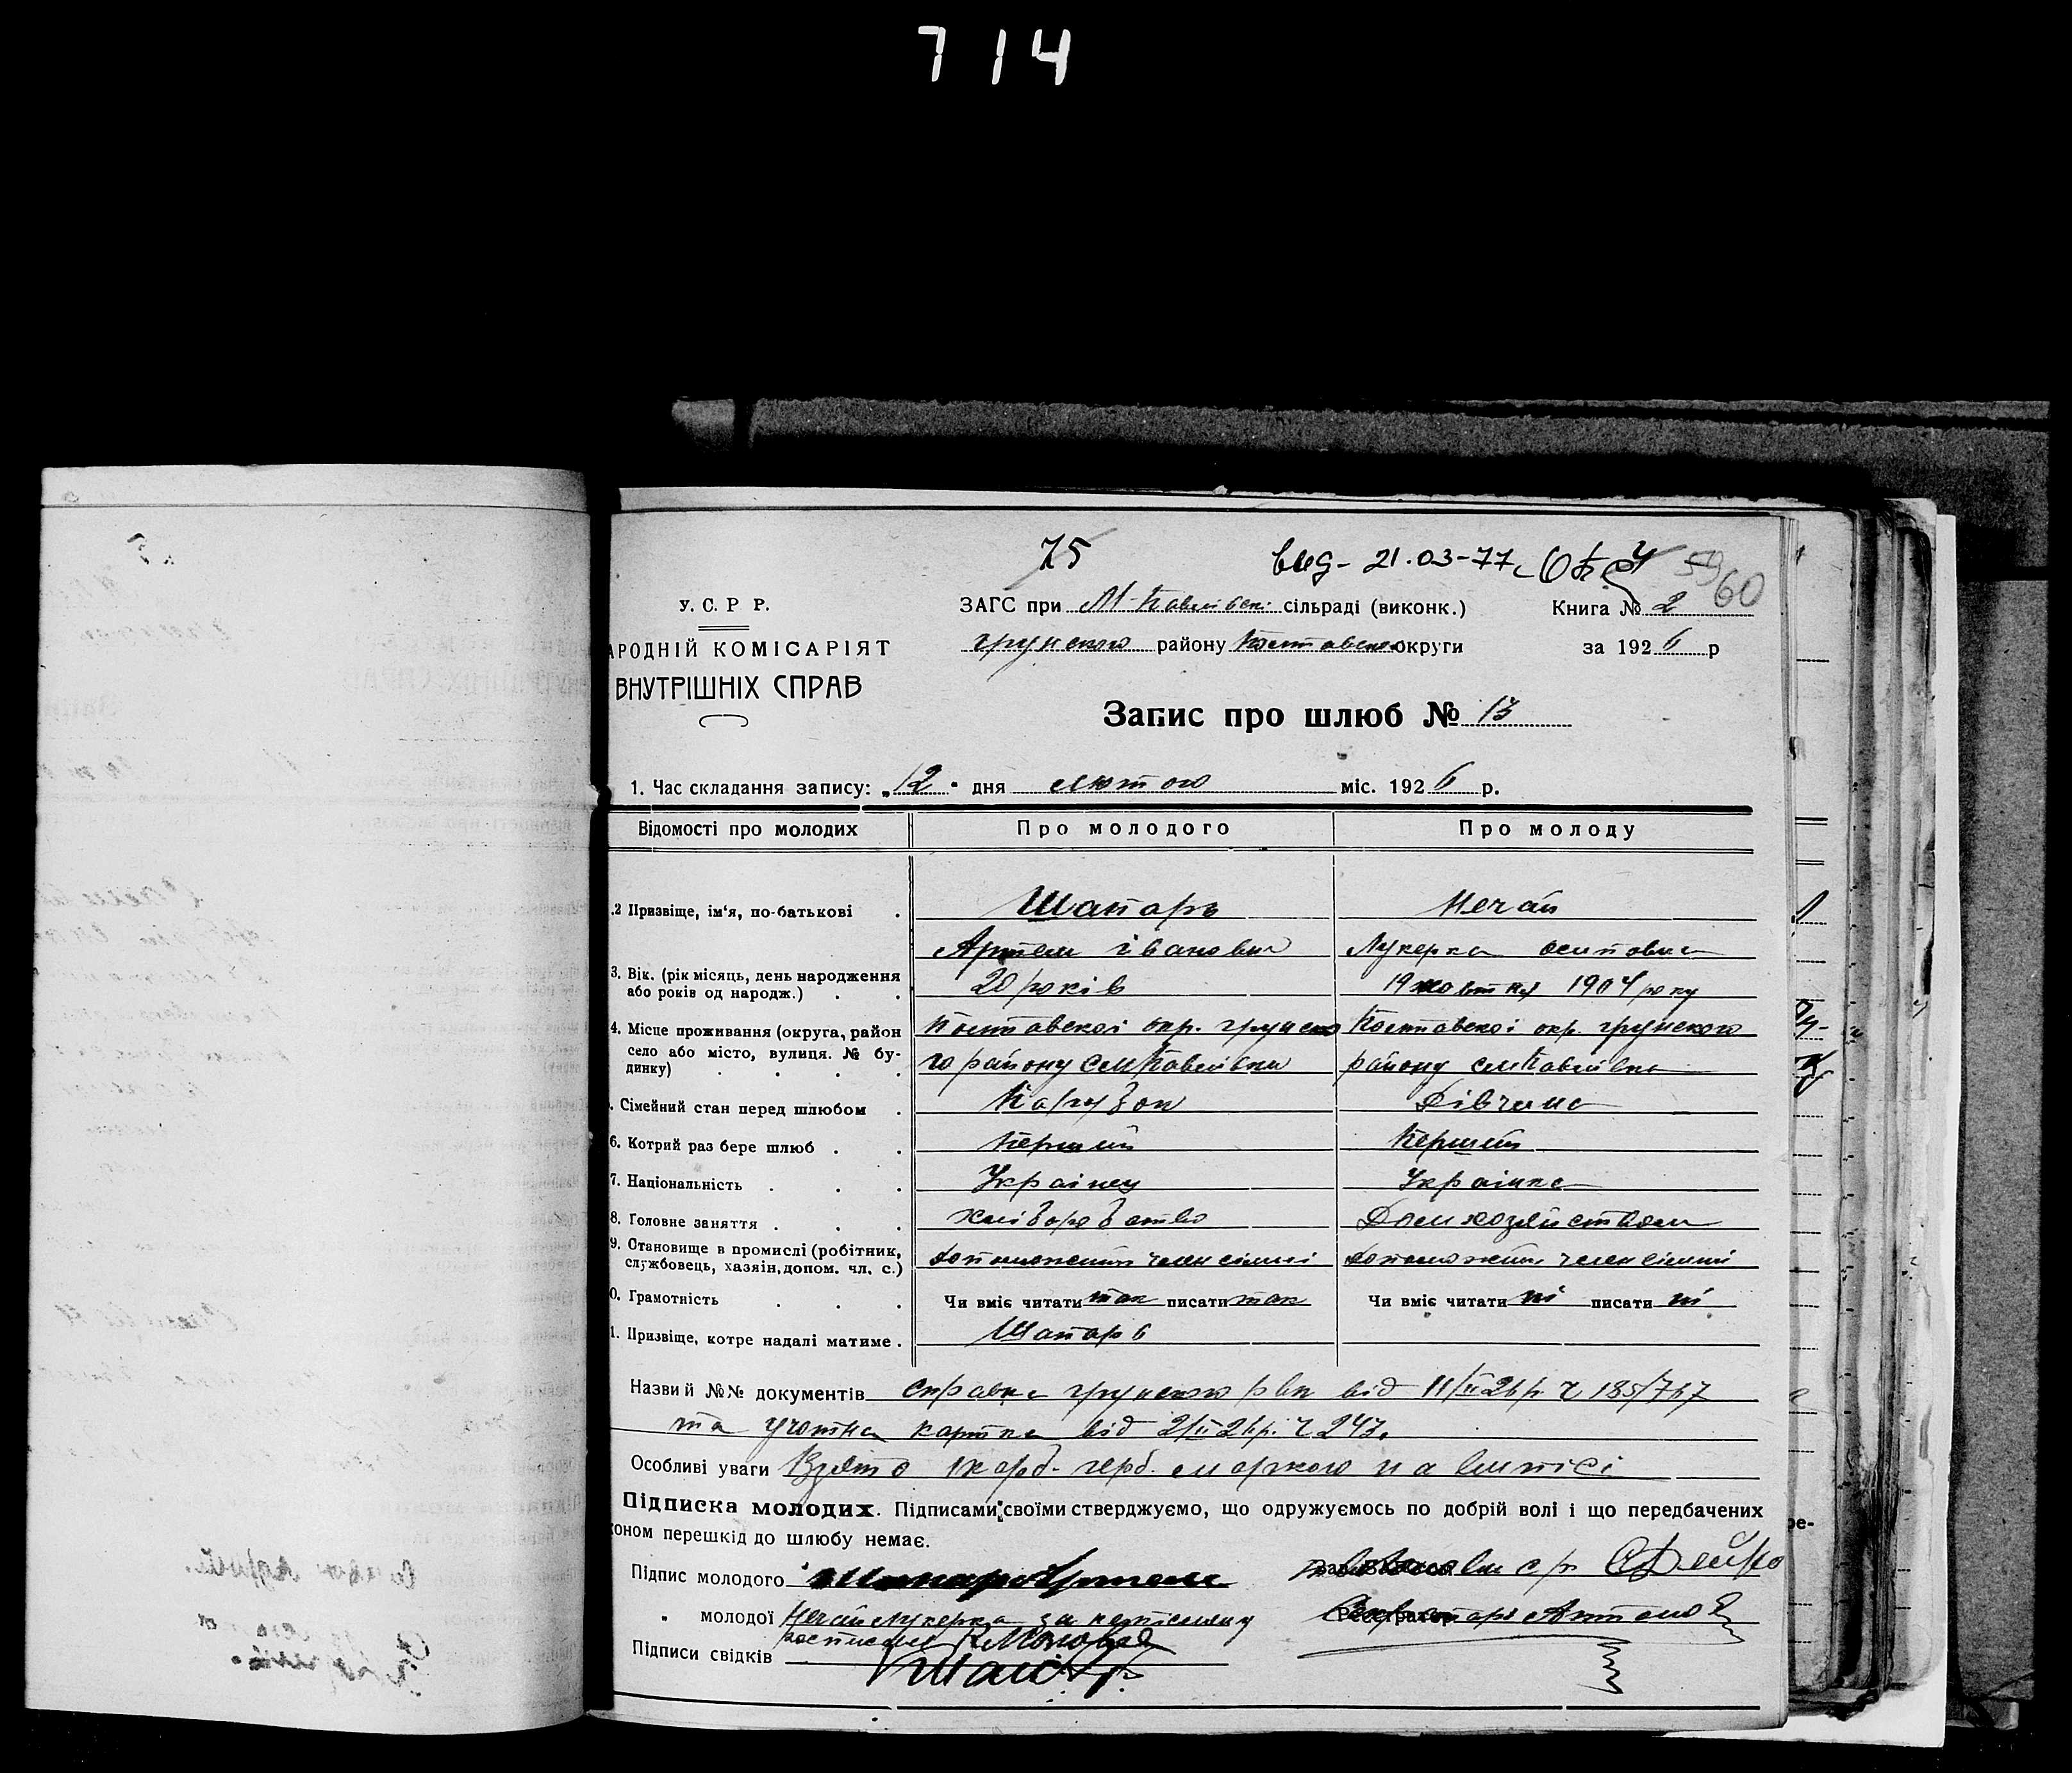 714
75
вид - 21.03-77
59 60
У. С. Р. Р.
ЗАГС при М-Павлівськ. сільраді (виконк.)
Книга № 2
АРОДНІЙ КОМІСАРІЯТ
грунського району Полтавськ округи
за 1926 р
ВНУТРІШНІХ СПРАВ
Запис про шлюб № 13
1. Час складання запису: „12" дня лютого міс. 1926 р.
Відомості про молодих
Про молодого
Про молоду
.2 Призвіще, ім'я, по-батькові
Шапарь
Нечай
Артем іванович
Лукерка осиповна
3. Вік. (рік місяць, день народження
або років од народж.)
20 років
19 жовтня 1904 року
4. Місце проживання (округа, район
село або місто, вулиця. № бу-
динку)
Полтавскоі окр. грунско
го району с М Павлівки
Полтавскоі окр. грунского
району с М Павлівка
. Сімейний стан перед шлюбом
Парубок
Дівчина
6. Котрий раз бере шлюб
Перший
Перший
7. Національність
Украінец
Украінка
8. Головне заняття
хліборобство
Домхозяйством
9. Становище в промислі (робітник,
службовець, хазяін, допом. чл. с.)
допоможний член сімьі
допоможний член сімьі
0. Грамотність
Чи вміє читати так писати так
Чи вміє читати ні писати ні
1. Призвіще, котре надалі матиме
Шапарь
Назви й №№ документів справка грунского рвк від 11/II 26 р. ч 185/767
та учотна картка від 2/II 26 р. ч 243.
Особливі уваги Взято 1 карб. герб. маркою на виписі
Підписка молодих. Підписами своїми стверджуємо, що одружуємось по добрій волі і що передбачених
коном перешкід до шлюбу немає.
Підпис молодого Шапарь Артем
„ молодої Нечай Лукерка за неписьмену
росписався
Підписи свідків